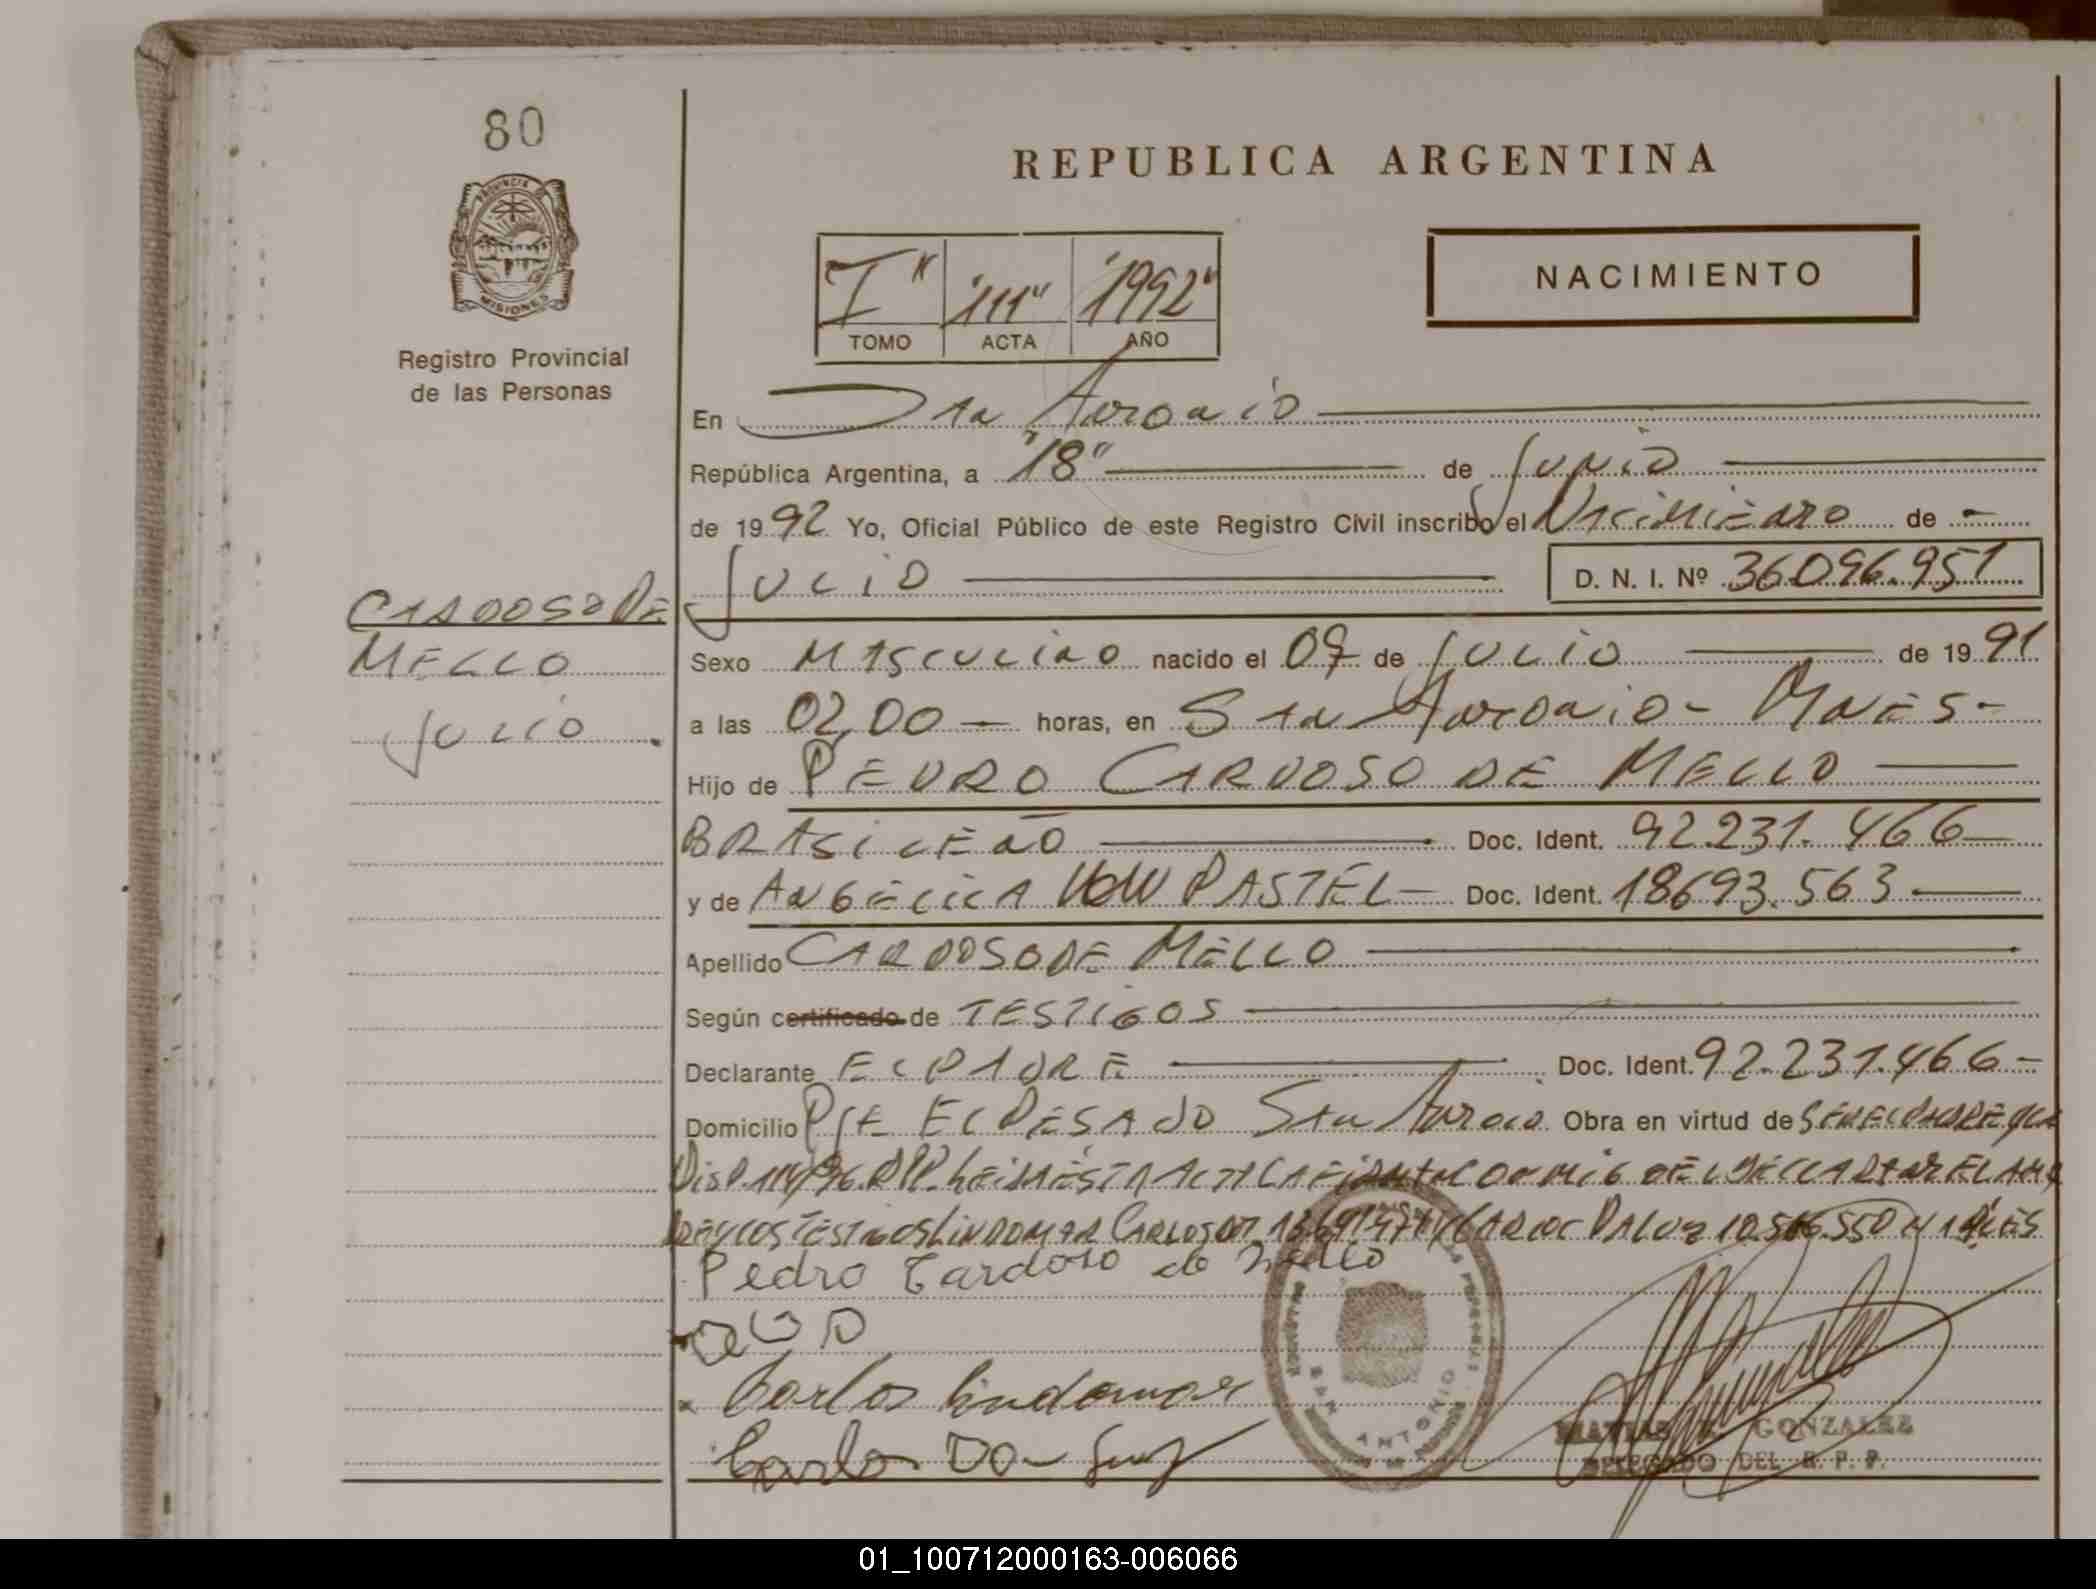 80
PROVINCIA
MISIONES
Registro Provincial
de las Personas
REPUBLICA ARGENTINA
NACIMIENTO
I" "111" "1992"
TOMO ACTA AÑO
En San Antonio
República Argentina, a "18" de Junio
de 1992 Yo, Oficial Público de este Registro Civil inscribo el Nacimiento de -
Julio D. N. I. Nº 36.096.951
CARDOSO DE
MELLO
Julio.
Sexo MASCULINO nacido el 07 de Julio de 1991
a las 02,00 horas, en San Antonio - Mnes -
Hijo de PEDRO CARDOSO DE MELLO
BRASILEÑO Doc. Ident. 92.231.466
y de ANGELICA VON PASTEL Doc. Ident. 18693.563
Apellido CARDOSO DE MELLO
Según certificado de TESTIGOS
Declarante EL PADRE Doc. Ident. 92.231.466
Domicilio Pje EL PESADO San Antonio. Obra en virtud de
Disp. LEIDA ESTA ACTA LA FIRMAN CONMIGO EL DECLARANTE LA
LOS TESTIGOS LINDOMAR CARLOS
Pedro Cardoso de Mello
Carlos Lindomar
Carlos
SAN ANTONIO
GONZALEZ
DELEGADO DEL R. P. P.
01_100712000163-006066